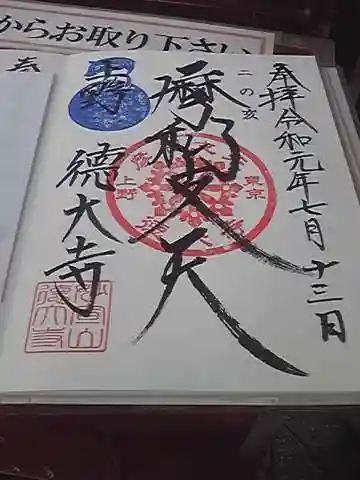 からお取り下さい
奉拝 令和元年七月十三日
二の亥
摩利支天
上野
徳大寺
上野
東京